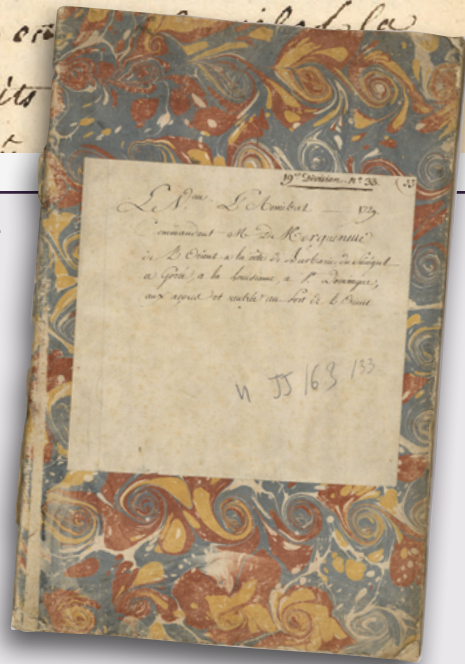 la
its
19me Division. N° 33. (33
Le Vau L'Annibal — 1729
Commandant Mr De Kerguenel
de L'Orient a la côte de Barbarie, du Sénégal
a Gorée, a la Louisiane, a St Domingue,
aux açores et rentré au Port de L'Orient
4 JJ 163 133